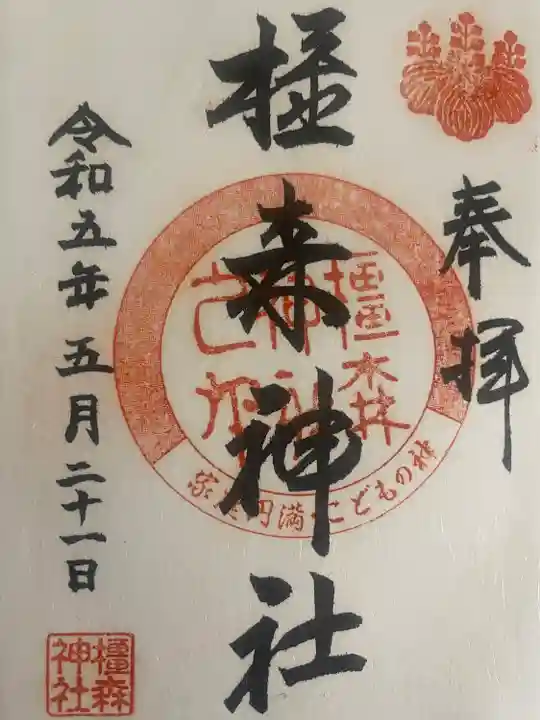 奉拝
橿森神社
橿森神社之印
家庭円満・こどもの神
令和五年五月二十一日
橿森神社